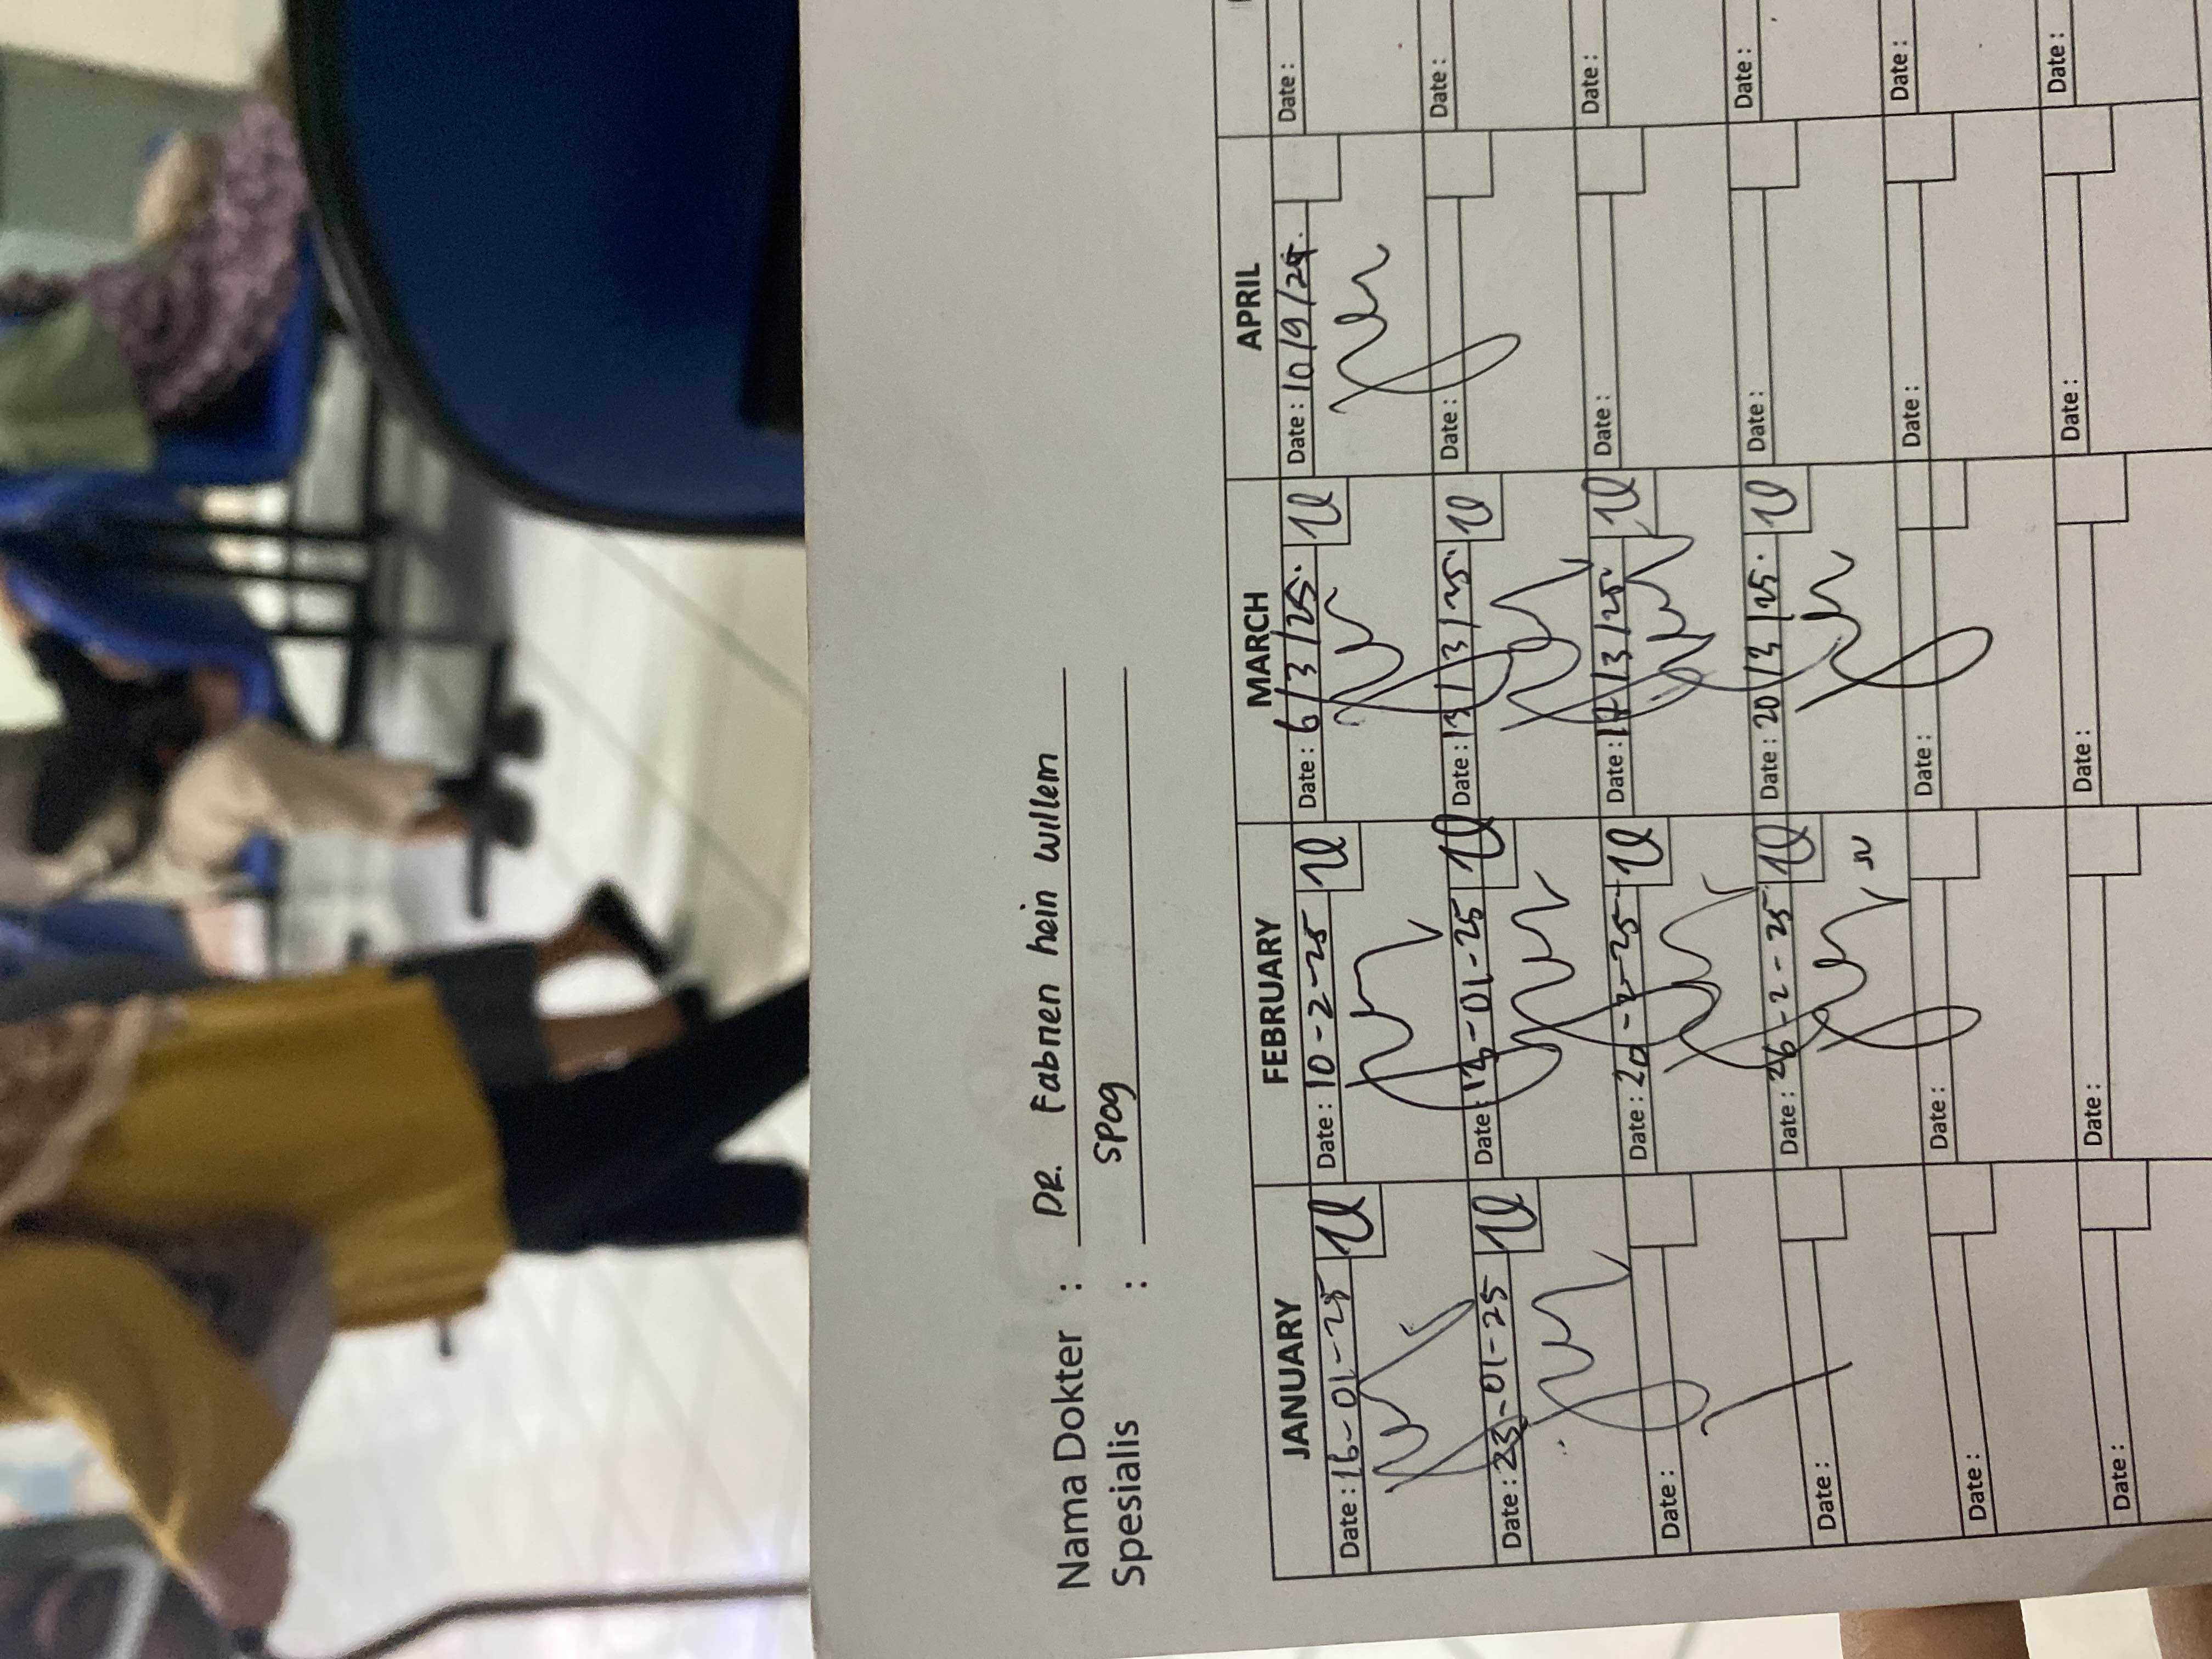 Nama Dokter : DR. Fabrien hein willem
Spesialis : SPOG
JANUARY FEBRUARY MARCH APRIL
Date : 16-01-25 Date : 10-2-25 Date : 6/3/25. Date : 10/9/24. Date :
Date : 23-01-25 Date : 13-01-25 Date : 13/3/25. Date : Date :
Date : Date : 20-2-25 Date : 17/3/25 Date : Date :
Date : Date : 26-2-25 Date : 20/3/25. Date : Date :
Date : Date : Date : Date : Date :
Date : Date : Date : Date : Date :